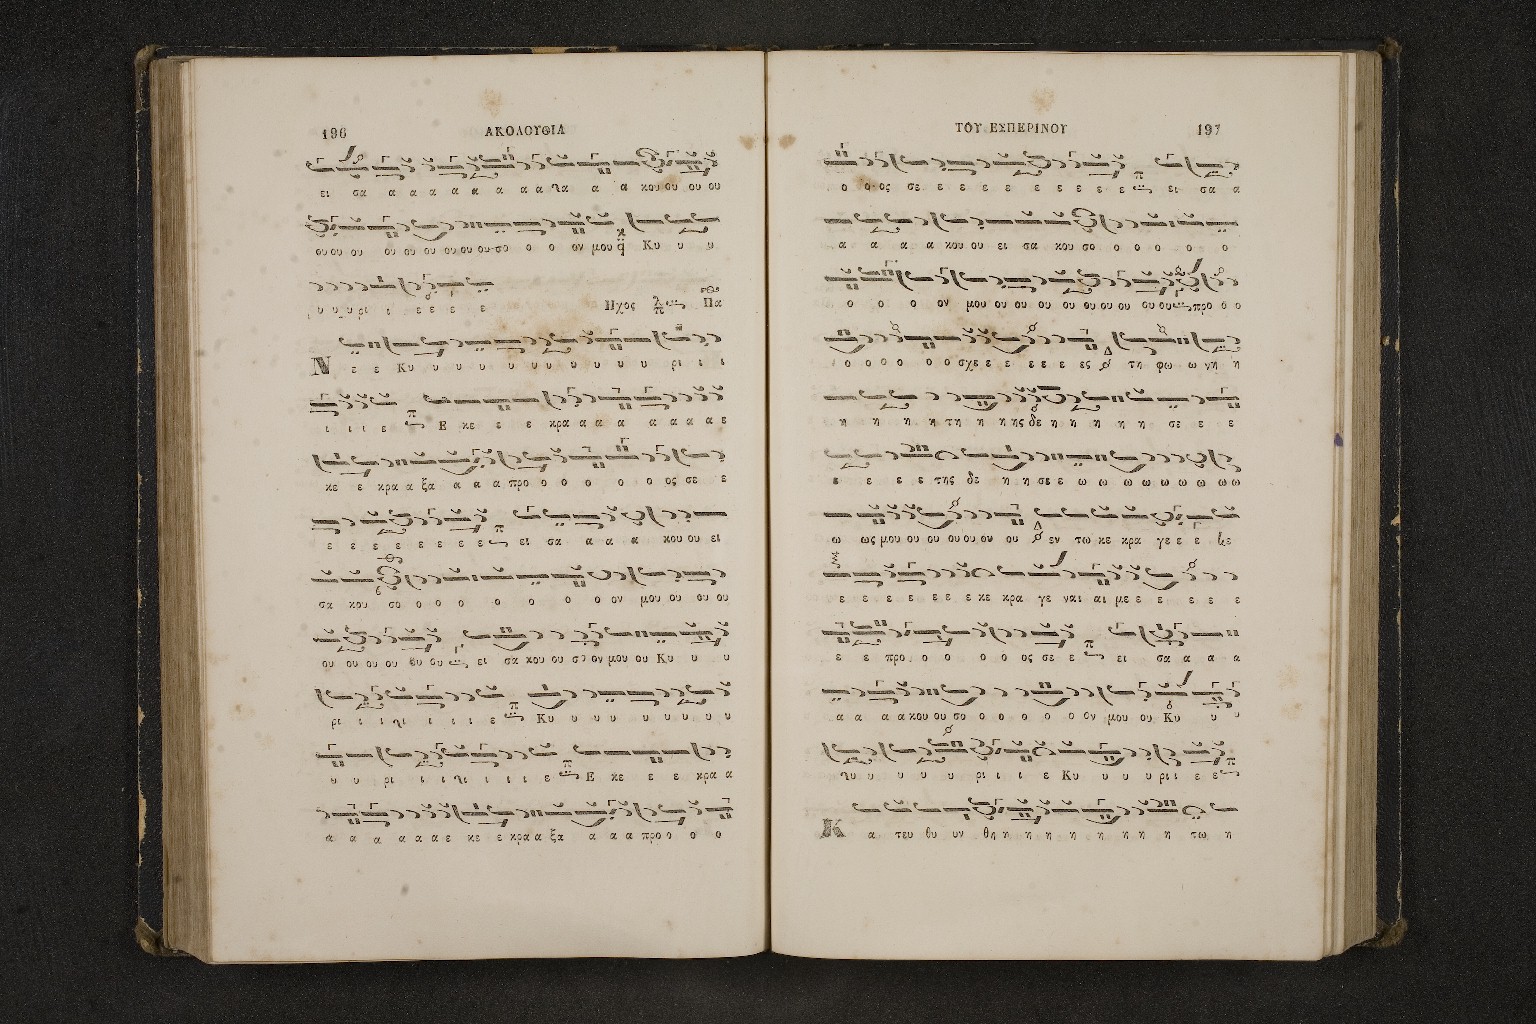 196 ΑΚΟΛΟΥΘΙΑ
ει σα α α α α α α α α λα α α κου ου ου ου
ου ου ου ου ου ου ου ου ου σο ο ο ον μου q Κυ υ υ
υ υ υ ρι ι ε ε ε ε Ηχος Πα
Ν ε ε Κυ υ υ υ υ υ υ υ υ υ υ ρι ι ι
ι ι ι ε Ε κε ε ε κρα α α α α α α α ε
κε ε κρα α ξα α α α προ ο ο ο ο ο ος σε ε
ε ε ε ε ε ε ε ε ει σα α α α κου ου ει
σα κου σο ο ο ο ο ο ο ο ον μου ου ου ου
ου ου ου ου ου ου ει σα κου ου σο ον μου ου Κυ υ υ
ρι ι ι λι ι ι ι ε Κυ υ υ υ υ υ υ υ υ
υ υ ρι ι ι λι ι ι ι ε Ε κε ε ε κρα α
α α α α α α ε κε ε κρα α ξα α α α προ ο ο ο
ΤΟΥ ΕΣΠΕΡΙΝΟΥ 197
ο ο ος σε ε ε ε ε ε ε ε ε ε ει σα α
α α α α κου ου ει σα κου σο ο ο ο ο ο
ο ο ο ον μου ου ου ου ου ου ου ου ου ου προ ο ο
ο ο ο ο ο ο σχε ε ε ε ε ε ες τη φω ω νη η
η η η η τη η η ης δε η η η η η σε ε ε
ε ε ε ε της δε η η σε ε ω ω ω ω ω ω ω ω
ω ως μου ου ου ου ου ου ου εν τω κε κρα γε ε ε κε
ε ε ε ε ε ε ε κε κρα γε ναι αι με ε ε ε ε ε
ε ε προ ο ο ο ο ος σε ε ει σα α α α
α α α α κου ου σο ο ο ο ο ο ον μου ου Κυ υ υ
λυ υ υ υ υ υ ρι ι ι ε Κυ υ υ υ ρι ι ε ε
Κ α τευ θυ υν θη η η η η η η η η τω η